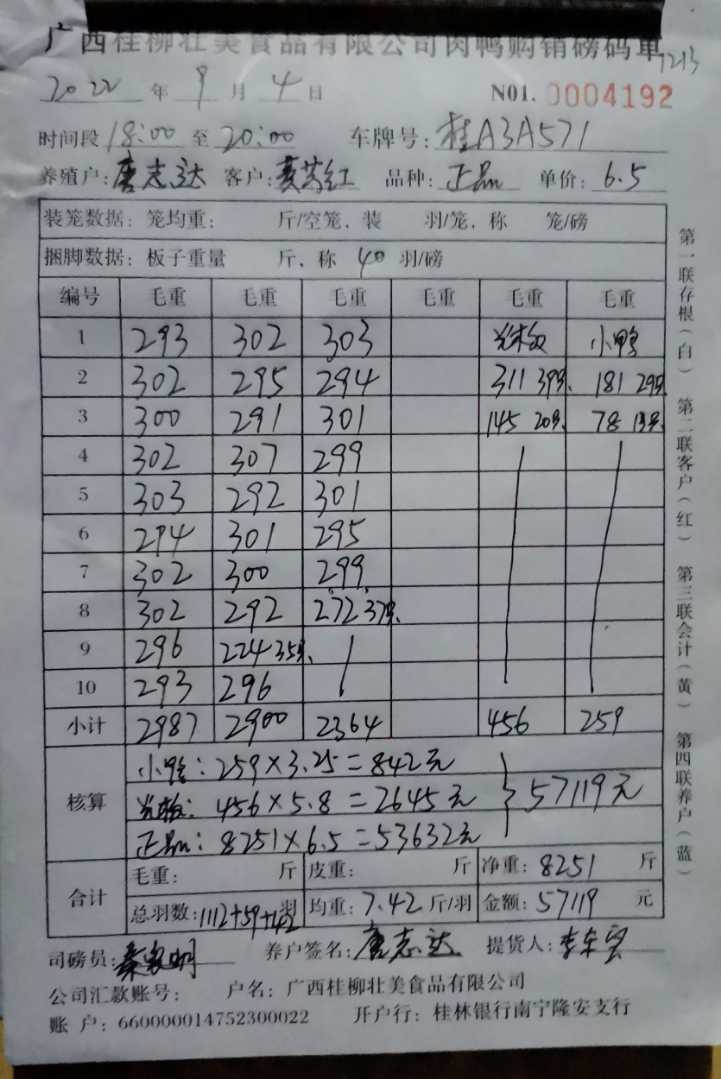 广西桂柳壮美食品有限公司肉鸭购销磅码单
7213
2022 年 9 月 4 日 N01. 0004192
时间段 18:00 至 20:00 车牌号: 桂A3A571
养殖户: 唐志达 客户: 红 品种: 正品 单价: 6.5
装笼数据: 笼均重: 斤/空笼、装 羽/笼、称 笼/磅
捆脚数据: 板子重量 斤、称 40 羽/磅
编号 毛重 毛重 毛重 毛重 毛重 毛重
1 293 302 303 光板 小鸭
2 302 295 294 311 39羽 181 29羽
3 300 291 301 145 20羽 78 13羽
4 302 307 299
5 303 292 301
6 294 301 295
7 302 300 299
8 302 292 272 37羽
9 296 224 35羽
10 293 296
小计 2987 2900 2364 456 259
核算
小鸭: 259×3.25=842元
光板: 456×5.8=2645元 } 57119元
正品: 8251×6.5=53632元
合计
毛重: 斤 皮重: 斤 净重: 8251 斤
总羽数: 1112+59+142 羽 均重: 7.42 斤/羽 金额: 57119 元
司磅员: 养户签名: 唐志达 提货人: 李
公司汇款账号: 户名: 广西桂柳壮美食品有限公司
账 户: 660000014752300022 开户行: 桂林银行南宁隆安支行
第一联存根(白) 第二联客户(红) 第三联会计(黄) 第四联养户(蓝)